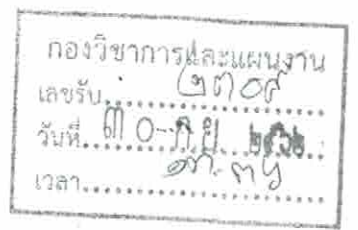 กองวิชาการและแผนงาน
เลขรับ ๒๓๐๙
วันที่ ๓๐ ก.ย. ๒๕๖๒
เวลา